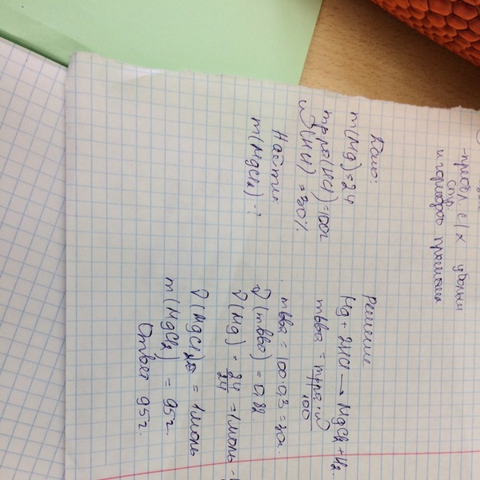 -преобл с/х
стр.
Дано:
m(Mg)=24
mр-ра(HCl)=100г
ω(HCl)=30%
Найти:
m(MgCl2)-?
Решение
Mg+2HCl → MgCl2+H2
mв-ва = mр-ра·ω
100
mв-ва = 100·0,3=30г.
ν(mв-ва)=0,82
ν(Mg)=24
24
=1моль
ν(MgCl2)=1моль
m(MgCl2)=95г.
Ответ 95г.